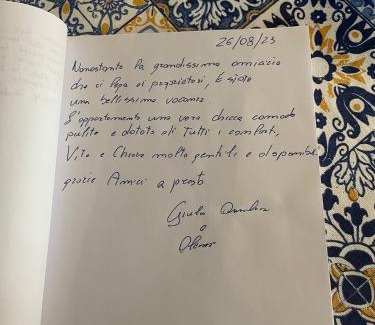 26/08/23
Nonostante la grandissima amicizia
che ci lega ai proprietari, È stata
una bellissima vacanza
L'appartamento una vera chicca comodo
pulito e dotato di Tutti i confort,
Vito e Chiara molto gentili e disponibili
grazie Amici a presto
Giulia
e